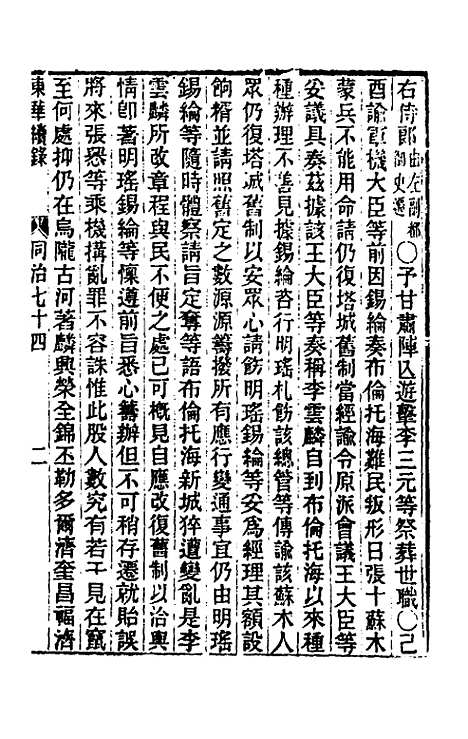 右侍郎由左副都御史遷〇予甘肅陣亡遊擊李三元等祭葬世職〇己
酉諭軍機大臣等前因錫綸奏布倫托海難民叛形日張十蘇木
蒙兵不能用命請仍復塔城舊制當經諭令原派會議王大臣等
妥議具奏茲據該王大臣等奏稱李雲麟自到布倫托海以來種
種辦理不善見據錫綸咨行明瑤札飭該總管等傳諭該蘇木人
眾仍復塔城舊制以安眾心請飭明瑤錫綸等妥爲經理其額設
餉糈並請照舊定之數源源籌撥所有應行變通事宜仍由明瑤
錫綸等隨時體察請旨定奪等語布倫托海新城猝遭變亂是李
雲麟所改章程與民不便之處已可概見自應改復舊制以洽輿
情卽著明瑤錫綸等懍遵前旨悉心籌辦但不可稍存遷就貽誤
將來張愻等乘機搆亂罪不容誅惟此股人數究有若干見在竄
至何處抑仍在烏隴古河著麟興榮全錦丕勒多爾濟奎昌福濟
東華續錄 同治七十四 二